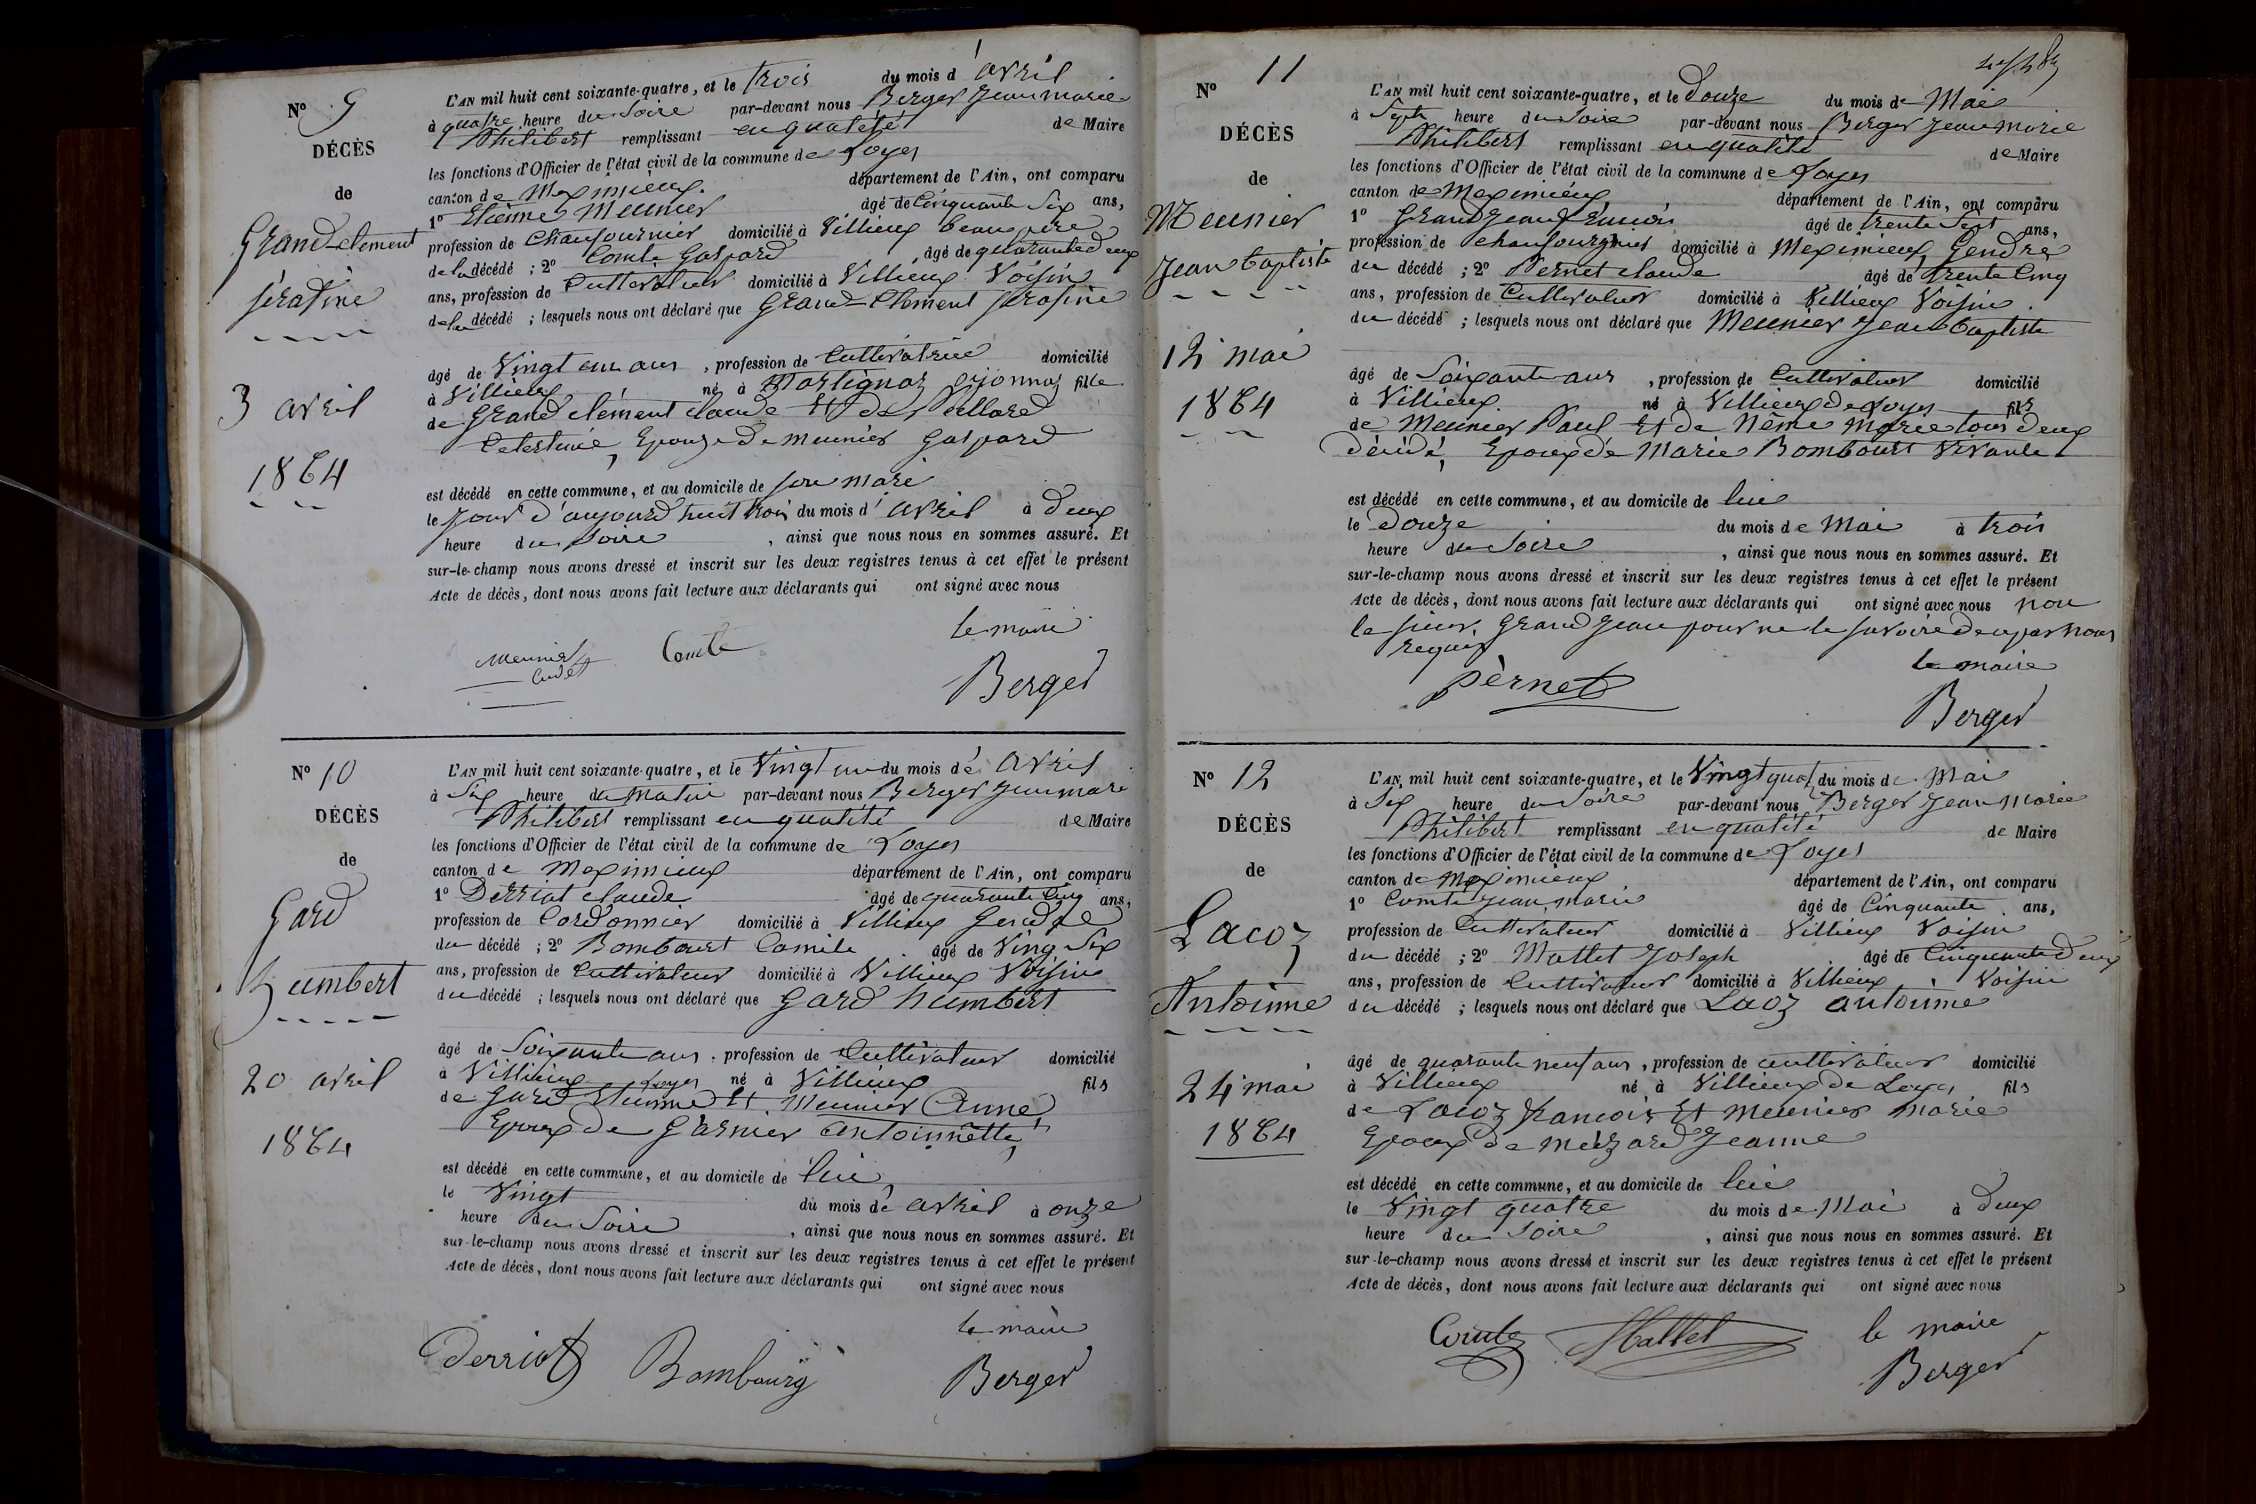 Nº 9
DÉCÈS
de
Grand-clement
sérafine
3 avril
1864
L'AN mil huit cent soixante-quatre, et le trois du mois d'avril
à quatre heure du Soire par-devant nous Berger Jean marie
Philibert remplissant en qualité de Maire
les fonctions d'Officier de l'état civil de la commune de Loyes
canton de Meximieux département de l'Ain, ont comparu
1º Etienne Meunier âgé de Cinquante Six ans,
profession de Chaufournier domicilié à Villieux beaupère
de la décédé ; 2º Comte Gaspard âgé de quarante deux
ans, profession de Cultivateur domicilié à Villieux Voisin
de la décédé ; lesquels nous ont déclaré que Grand-Clement Serafine
âgé de Vingt un ans, profession de Cultivatrice domicilié
à Villieux né à Martignaz oyonnaz fille
de Grand clément claude Et de
Celestinie, Epouze de meunier Gaspard
est décédé en cette commune, et au domicile de son mari
le jour d'aujourd'huit trois du mois d'avril à deux
heure du Soire, ainsi que nous nous en sommes assuré. Et
sur-le-champ nous avons dressé et inscrit sur les deux registres tenus à cet effet le présent
Acte de décès, dont nous avons fait lecture aux déclarants qui ont signé avec nous
le maire
Meunier Comte
Berger
Nº 10
DÉCÈS
de
Gard
humbert
20 avril
1864
L'AN mil huit cent soixante-quatre, et le Vingt un du mois de avril
à Six heure du Matin par-devant nous Berger Jean marie
Philibert remplissant en qualité de Maire
les fonctions d'Officier de l'état civil de la commune de Loyes
canton de Meximieux département de l'Ain, ont comparu
1º Derriat claude âgé de quarante Cinq ans,
profession de Cordonnier domicilié à Villieux Gendre
du décédé ; 2º Bombourt Camile âgé de Ving Six
ans, profession de Cultivateur domicilié à Villieux Voisin
du décédé ; lesquels nous ont déclaré que Gard humbert
âgé de Soixante ans. profession de Cultivateur domicilié
à Villieux Loyes né à Villieux fils
de Gard Etienne Et Meunier Anne
Epoux de Garnier antoinnette,
est décédé en cette commune, et au domicile de lui
le Vingt du mois de avril à onze
heure du Soire, ainsi que nous nous en sommes assuré. Et
sur-le-champ nous avons dressé et inscrit sur les deux registres tenus à cet effet le présent
Acte de décès, dont nous avons fait lecture aux déclarants qui ont signé avec nous
le maire
Derriat Bombourg Berger
Nº 11
DÉCÈS
de
Meunier
Jean baptiste
12 mai
1864
L'AN mil huit cent soixante-quatre, et le Douze du mois de Mai
à Sept heure du Soire par-devant nous Berger Jean Marie
Philibert remplissant en qualité de Maire
les fonctions d'Officier de l'état civil de la commune de Loyes
canton de Meximieux département de l'Ain, ont comparu
1º Grand Jean âgé de trente Sept ans,
profession de chaufournier domicilié à Meximieux Gendre
du décédé ; 2º Pernet claude âgé de trente Cinq
ans, profession de Cultivateur domicilié à Villieux Voisin.
du décédé ; lesquels nous ont déclaré que Meunier Jean baptiste
âgé de Soixante ans, profession de Cultivateur domicilié
à Villieux. né à Villieux de Loyes fils
de Meunier Paul Et de Même Marie tous deux
décédé, Epoux de Marie Bombourt Vivante
est décédé en cette commune, et au domicile de lui
le Douze du mois de Mai à trois
heure du Soire, ainsi que nous nous en sommes assuré. Et
sur-le-champ nous avons dressé et inscrit sur les deux registres tenus à cet effet le présent
Acte de décès, dont nous avons fait lecture aux déclarants qui ont signé avec nous non
le sieur Grand Jean pour ne le savoire de ce par nous
requis.
le maire
pèrnet
Berger
Nº 12
DÉCÈS
de
Lacoz
Antoinne
24 mai
1864
L'AN mil huit cent soixante-quatre, et le Vingt quat du mois de Mai
à Six heure du Soire par-devant nous Berger Jean Marie
Philibert remplissant en qualité de Maire
les fonctions d'Officier de l'état civil de la commune de Loyes
canton de Meximieux département de l'Ain, ont comparu
1º Comte Jean Marie âgé de Cinquante ans,
profession de Cultivateur domicilié à Villieux Voisin
du décédé ; 2º Mallet Joseph âgé de Cinquante deux
ans, profession de Cultivateur domicilié à Villieux Voisin
du décédé ; lesquels nous ont déclaré que Laoz antoinne
âgé de quarante neuf ans, profession de cultivateur domicilié
à Villieux né à Villieux de Loyes fils
de Lacoz francois Et Meunier Marie
Epoux de Meizard Jeanne
est décédé en cette commune, et au domicile de lui
le Vingt quatre du mois de Mai à Deux
heure du Soire, ainsi que nous nous en sommes assuré. Et
sur-le-champ nous avons dressé et inscrit sur les deux registres tenus à cet effet le présent
Acte de décès, dont nous avons fait lecture aux déclarants qui ont signé avec nous
Comte Mallet le maire
Berger